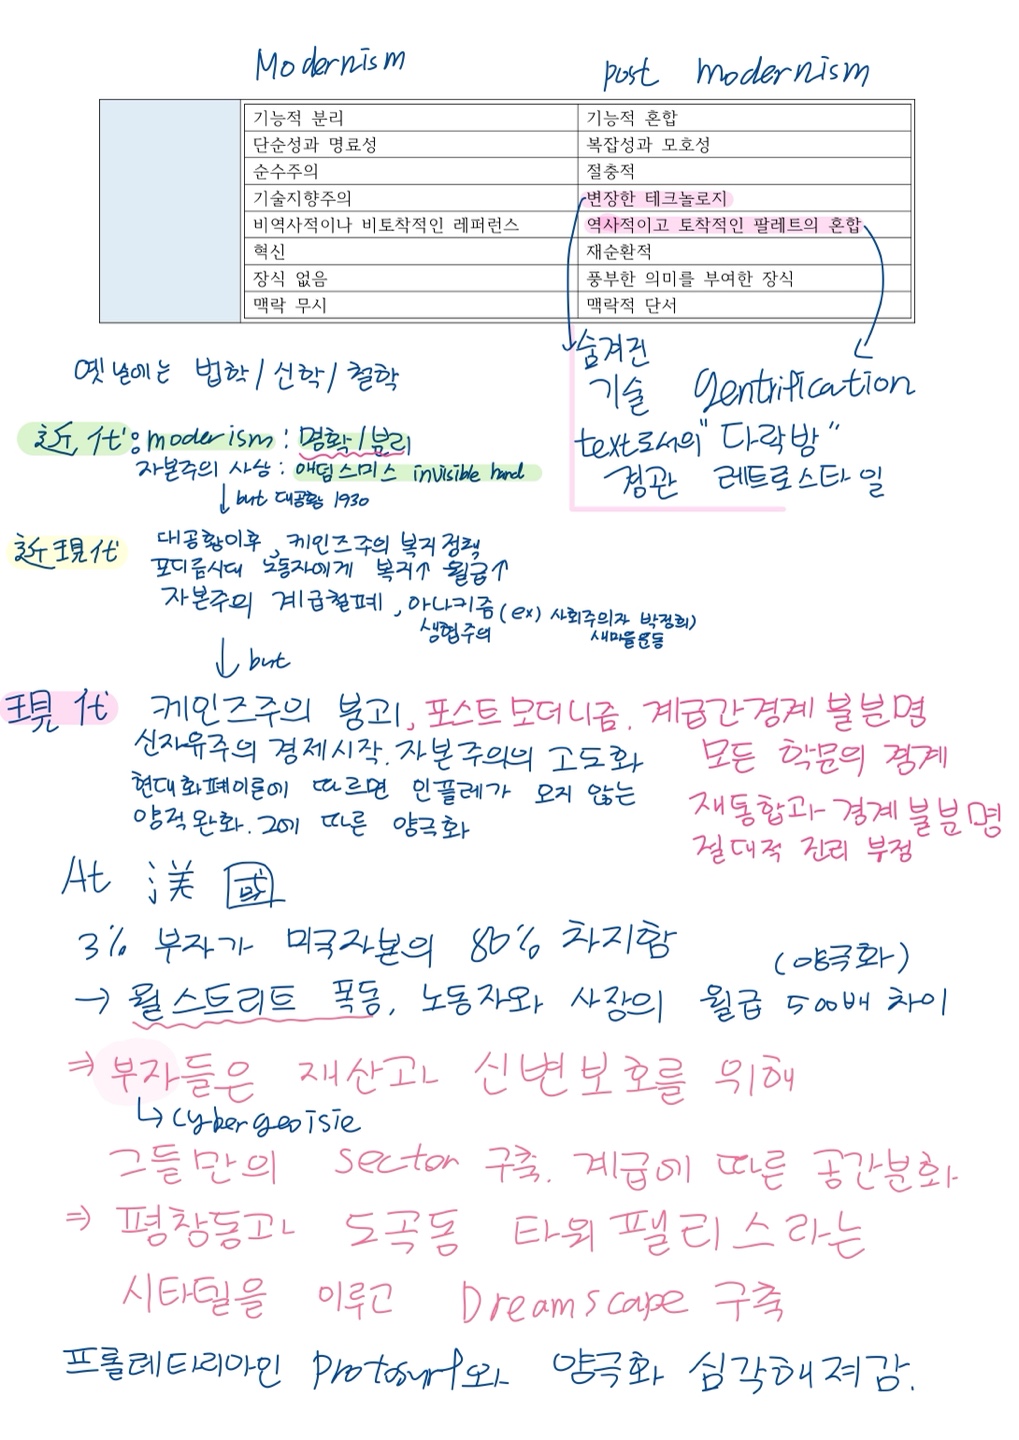 Modernism post modernism
기능적 분리 기능적 혼합
단순성과 명료성 복잡성과 모호성
순수주의 절충적
기술지향주의 변장한 테크놀로지
비역사적이나 비토착적인 레퍼런스 역사적이고 토착적인 팔레트의 혼합
혁신 재순환적
장식 없음 풍부한 의미를 부여한 장식
맥락 무시 맥락적 단서
숨겨진
기술 gentrification
text로서의 "다락방"
경관 레트로스타일
옛날에는 법학/신학/철학
近代: moderism: 명확/분리
자본주의 사상: 애덤스미스 invisible hand
↓but 대공황 1930
近現代 대공황이후, 케인즈주의 복지정책
포디즘시대 노동자에게 복지↑ 월급↑
자본주의 계급철폐, 아나키즘 (ex) 사회주의자 박정희)
생협주의 새마을운동
↓but
現代 케인즈주의 붕괴, 포스트모더니즘. 계급간경계 불분명
신자유주의 경제시작. 자본주의의 고도화 모든 학문의 경계
현대화폐이론에 따르면 인플레가 오지 않는 재통합과 경계불분명
양적완화. 그에 따른 양극화 절대적 진리 부정
At 美國
3% 부자가 미국자본의 80% 차지함
(양극화)
→ 월스트리트 폭동, 노동자와 사장의 월급 500배 차이
⇒ 부자들은 재산과 신변보호를 위해
↳ cybergeoisie
그들만의 sector 구축. 계급에 따른 공간분화
⇒ 평창동과 도곡동 타워팰리스라는
시타델을 이루고 Dreamscape 구축
프롤레타리아인 Protosurf와 양극화 심각해져감.